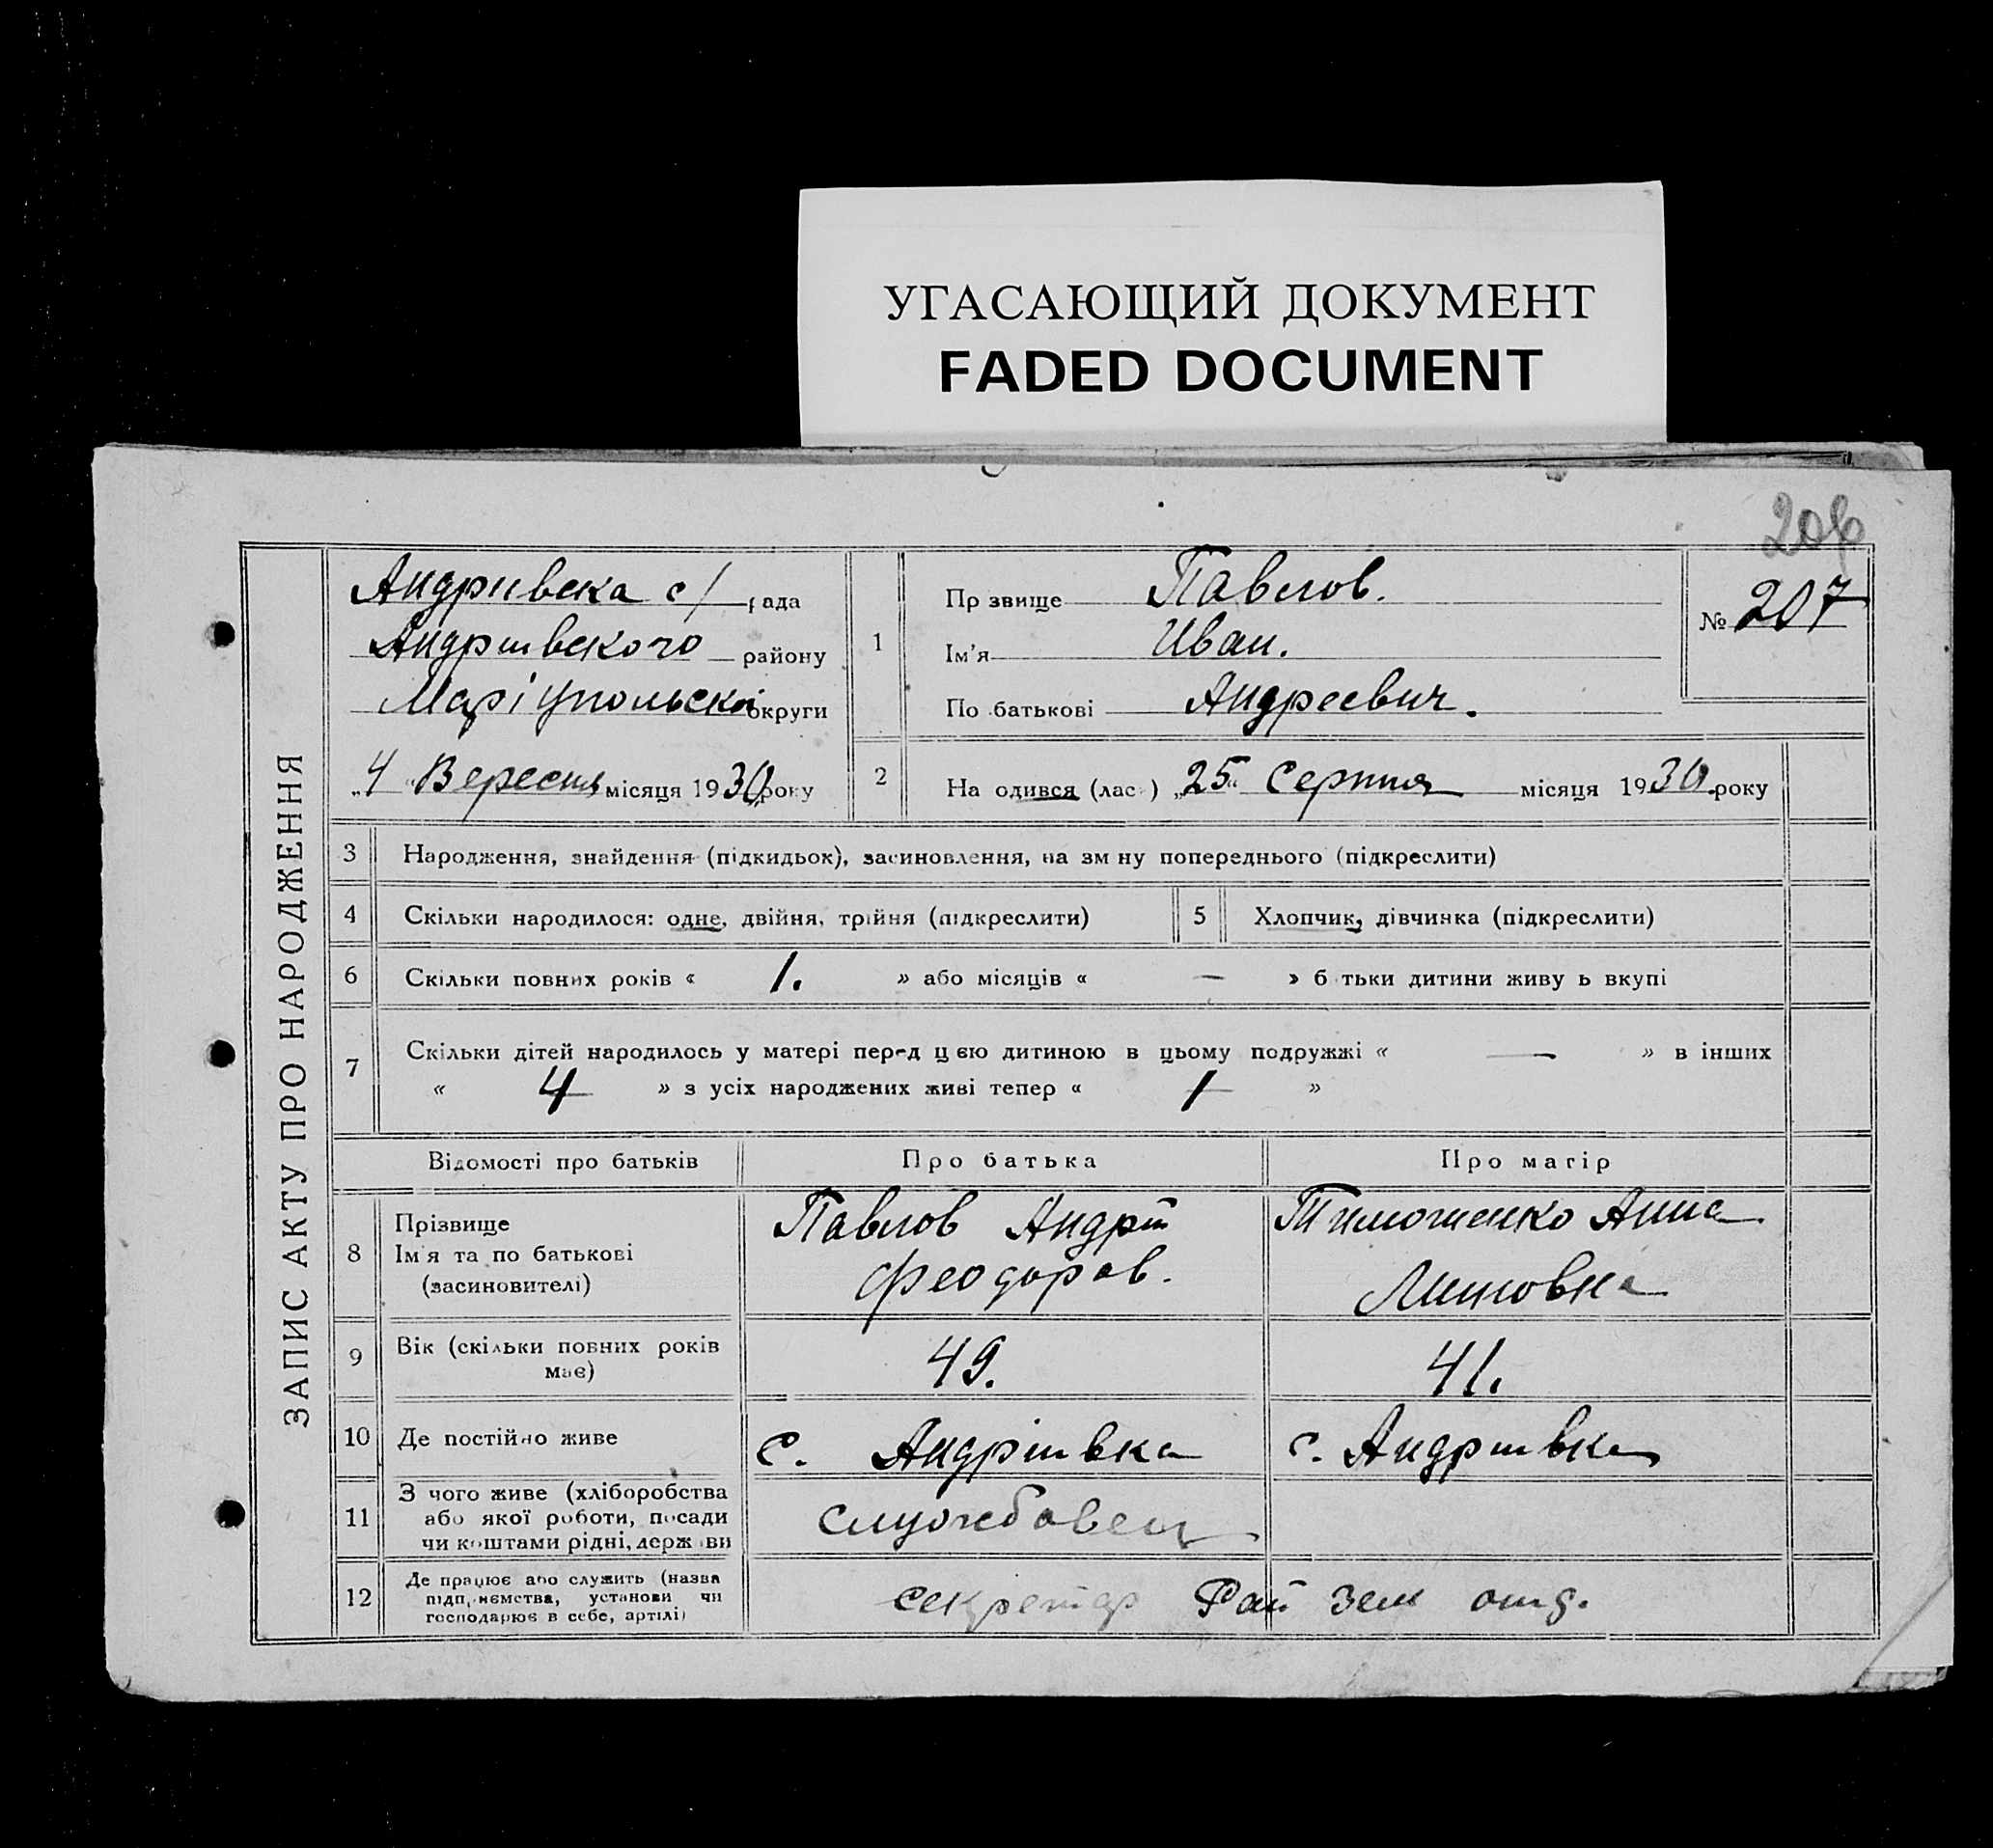 УГАСАЮЩИЙ ДОКУМЕНТ
FADED DOCUMENT
ЗАПИС АКТУ ПРО НАРОДЖЕННЯ
Андриивска с/ рада
Андріівского району
Маріупольскоі округи
„4“ Вересня місяця 1930 року
1
Пр звище Павлов.
Ім'я Иван.
По батькові Андреевич.
№ 207
2 На одився (лас ) „25“ Серпня місяця 1930 року
3 Народження, знайдення (підкидьок), засиновлення, на зм ну попереднього (підкреслити)
4 Скільки народилося: одне, двійня, трійня (підкреслити) 5 Хлопчик, дівчинка (підкреслити)
6 Скільки повних років « 1. » або місяців « — » б тьки дитини живу ь вкупі
7 Скільки дітей народилось у матері перед цією дитиною в цьому подружжі « — » в інших
« 4 » з усіх народжених живі тепер « 1 »
Відомості про батьків Про батька Про матір
8 Прізвище
Ім'я та по батькові
(засиновителі)
Павлов Андрій
Феодоров.
Тимошенко Анна
9 Вік (скільки повних років
має)
49. 41.
10 Де постійно живе с. Андріівка с. Андріівка
11 З чого живе (хліборобства
або якої роботи, посади
чи коштами рідні, держ ви
службовец
12 Де працює або служить (назва
підп, иємства, установи чи
господарює в себе, артілі)
секретар Рай зем отд.